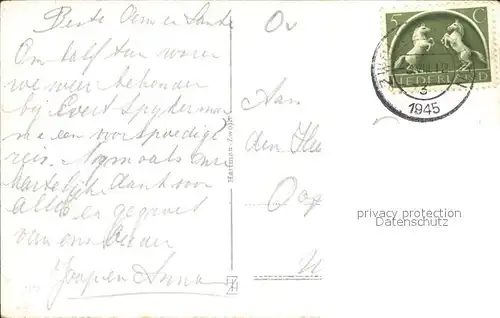 Beste Oom en Tante
Om half tien waren
we weer behouden
bij Evert Spijkerman
na een voorspoedige
reis. Nogmaals onze
hartelijke dank voor
alles en gegroet
van ons beiden
Joop en Anna
Hartman-Zwolle
Aan
den Hee
5 C
NEDERLAND
3
1945
privacy protection
Datenschutz